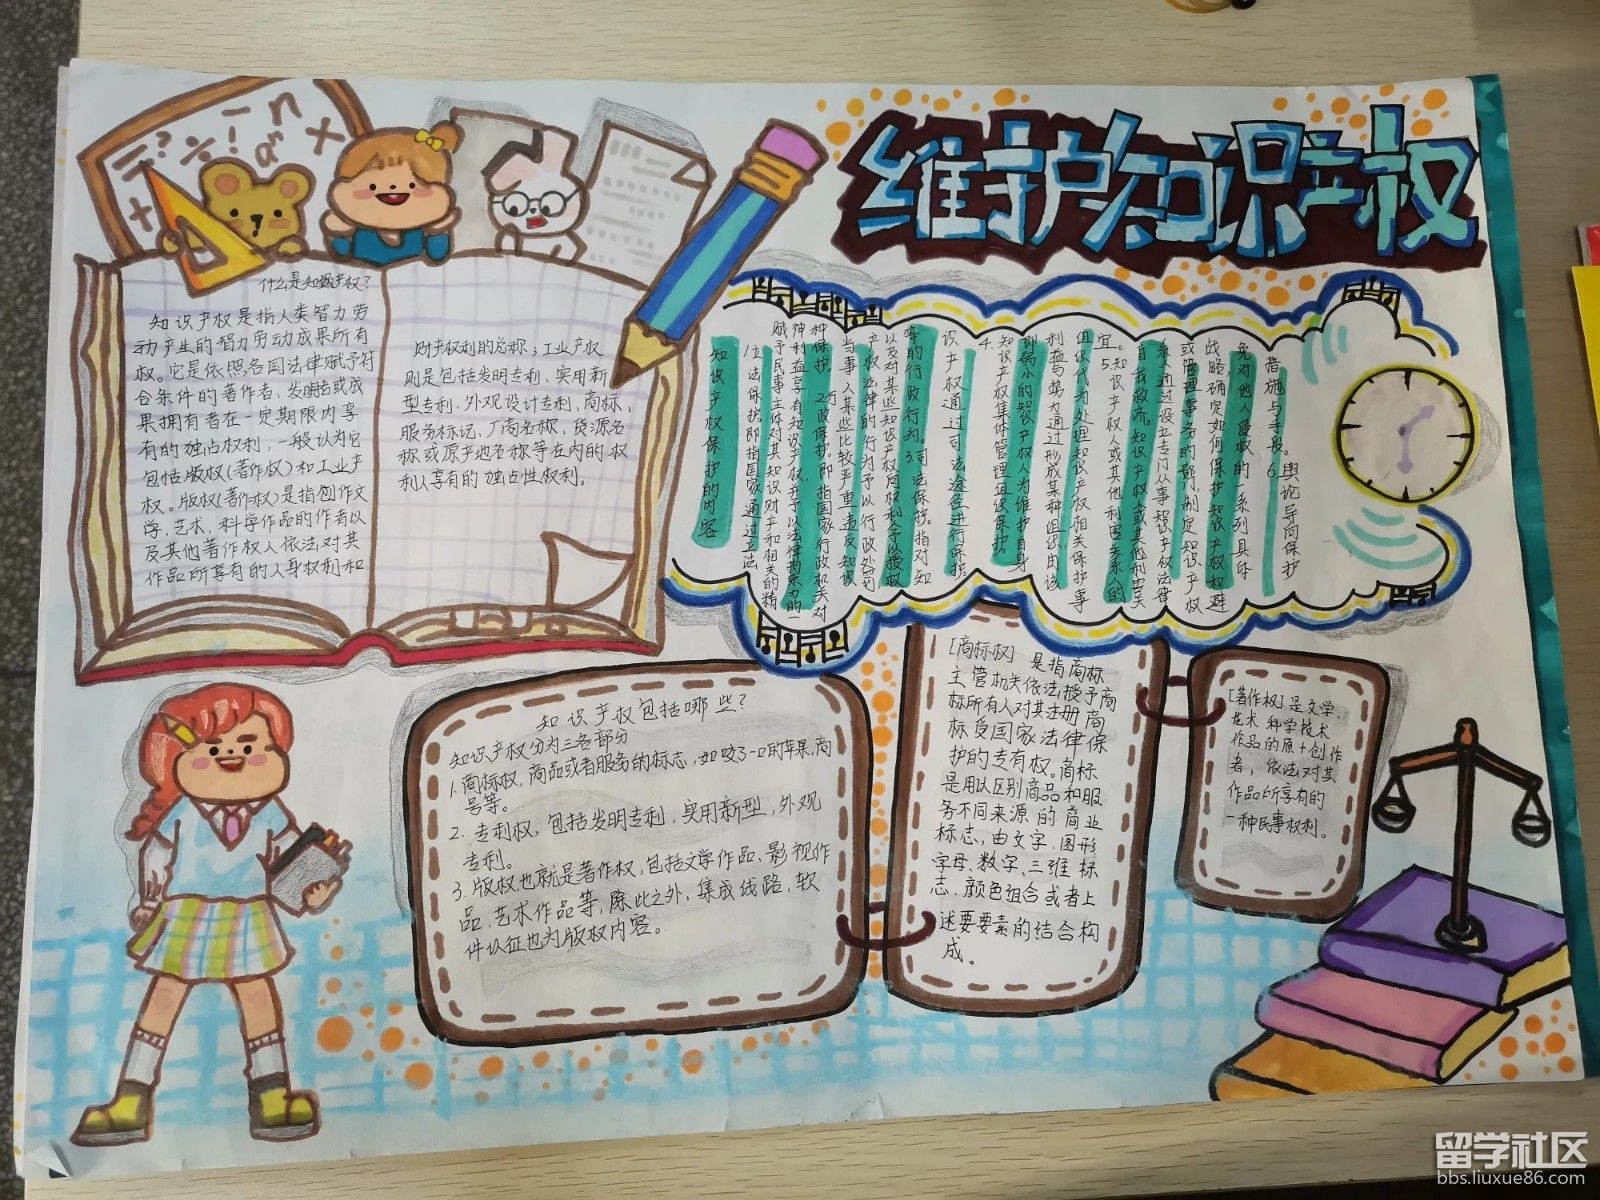 维护知识产权
什么是知识产权?
知识产权是指人类智力劳
动产生的智力劳动成果所有
权。它是依照各国法律赋予符
合条件的著作者、发明者或成
果拥有者在一定期限内享
有的独占权利，一般认为它
包括版权(著作权)和工业产
权。版权(著作权)是指创作文
学、艺术、科学作品的作者以
及其他著作权人依法对其
作品所享有的人身权利和
财产权利的总称；工业产权
则是包括发明专利、实用新
型专利、外观设计专利，商标，
服务标记，厂商名称，货源名
称或原产地名称等在内的权
利人享有的独占性权利。
知识产权保护的内容
1.立法保护。即指国家通过立法
赋予民事主体对其知识财产和相关的精
神利益享有知识产权，并予以法律拘束力的一
种保护。2.行政保护。即指国家行政机关对
当事人某些比较严重违反知识
产权法律的行为予以行政处罚
以及对某些知识产权向权利人予以授权
等的行政行为。3.司法保护。指对知
识产权通过司法途径进行保护。
4.知识产权集体管理组织保护。
即弱小的知识产权人为维护自身
利益与势力通过形成某种组织，由该
组织代为处理知识产权相关保护事
宜。5.知识产权人或其他利害关系人的
自我救济。知识产权人或其他利害关
系人通过设立专门从事知识产权法律
或管理事务的部门，制定知识产权
战略，确定如何保护知识产权和避
免对他人侵权的一系列具体
措施与手段。6.舆论导向保护
知识产权包括哪些?
知识产权分为三各部分
1.商标权，商品或者服务的标志，如咬了一口的苹果，商
号等。
2.专利权，包括发明专利，实用新型，外观
专利。
3.版权也就是著作权，包括文学作品、影视作
品、艺术作品等，除此之外，集成线路，软
件认征也为版权内容。
[商标权] 是指商标
主管机关依法授予商
标所有人对其注册商
标受国家法律保
护的专有权。商标
是用以区别商品和服
务不同来源的商业
标志，由文字、图形
字母、数字、三维标
志、颜色组合或者上
述要要素的结合构
成。
[著作权]是文学、
艺术 科学技术
作品的原十创作
者，依法对其
作品所享有的
一种民事权利。
留学社区
bbs.liuxue86.com